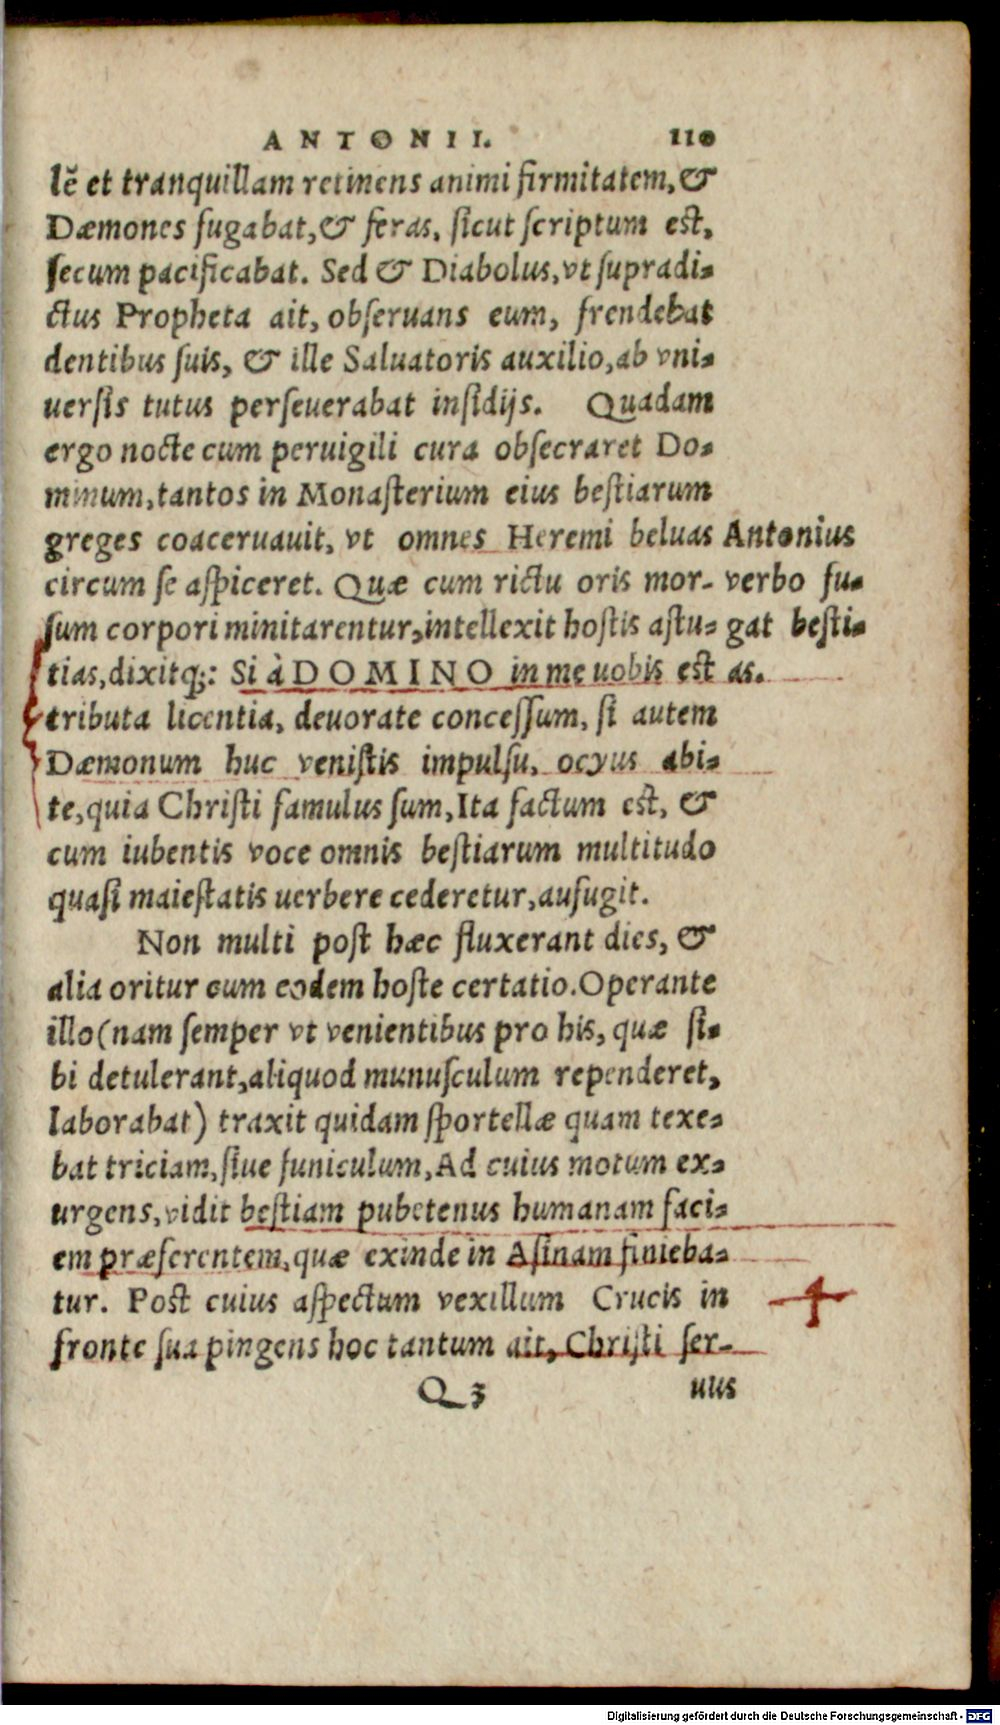 ANTONII. 110
lẽ et tranquillam retinens animi firmitatem, &
Dæmones fugabat, & feras, sicut scriptum est,
secum pacificabat. Sed & Diabolus, vt supradi-
ctus Propheta ait, obseruans eum, frendebat
dentibus suis, & ille Saluatoris auxilio, ab vni-
uersis tutus perseuerabat insidijs. Quadam
ergo nocte cum peruigili cura obsecraret Do-
minum, tantos in Monasterium eius bestiarum
greges coaceruauit, vt omnes Heremi beluas
circum se aspiceret. Quæ cum rictu oris mor-
sum corpori minitarentur, intellexit hostis astu-
tias, dixitq;: Si à DOMINO in me uobis est at
tributa licentia, deuorate concessum, si autem
Dæmonum huc venistis impulsu, ocyus abi-
te, quia Christi famulus sum, Ita factum est, &
cum iubentis voce omnis bestiarum multitudo
quasi maiestatis uerbere cederetur, aufugit.
Antonius
verbo fu-
gat besti-
as.
Non multi post hæc fluxerant dies, &
alia oritur cum eodem hoste certatio. Operante
illo (nam semper vt venientibus pro his, quæ si-
bi detulerant, aliquod munusculum rependeret,
laborabat) traxit quidam sportellæ quam texe-
bat triciam, siue funiculum, Ad cuius motum ex-
urgens, vidit bestiam pubetenus humanam faci-
em præferentem, quæ exinde in Asinam finieba-
tur. Post cuius aspectum vexillum Crucis in
fronte sua pingens hoc tantum ait, Christi ser-
Q 3 uus
Digitalisierung gefördert durch die Deutsche Forschungsgemeinschaft - DFG